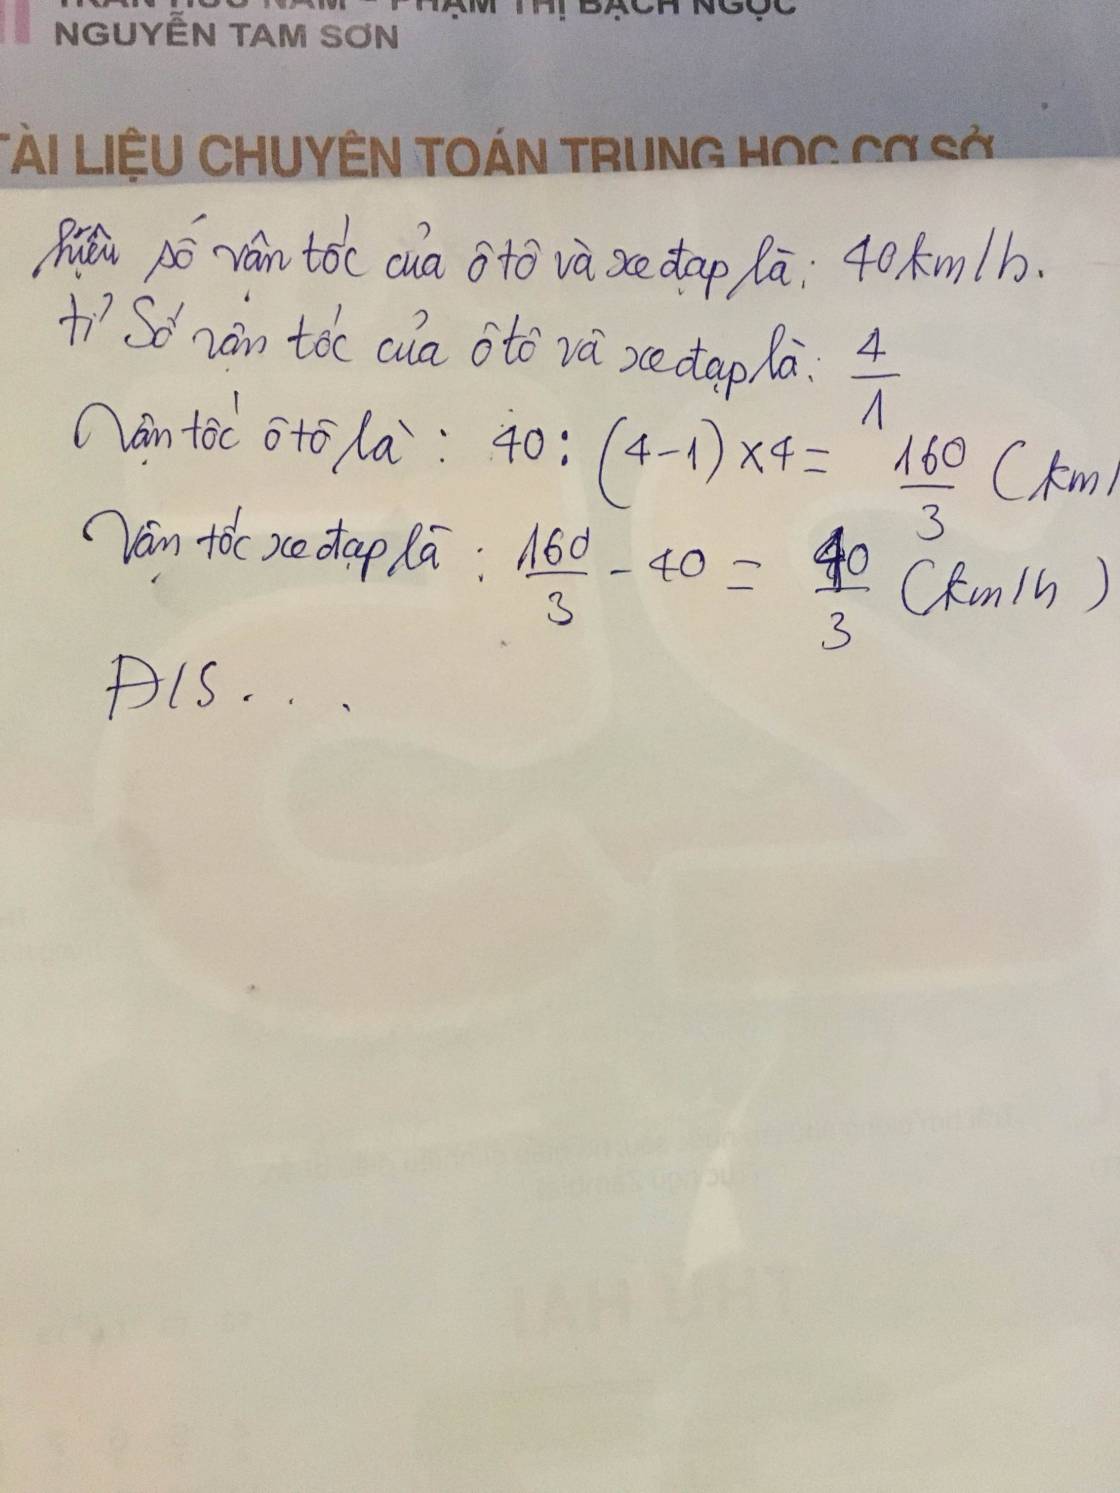 TRẦN HỮU NAM - PHẠM THỊ BẠCH NGỌC
NGUYỄN TAM SƠN
TÀI LIỆU CHUYÊN TOÁN TRUNG HỌC CƠ SỞ
hiệu số vân tốc của ô tô và xe đạp là: 40km/h.
tỉ số vận tốc của ô tô và xe đạp là: 4/1
Vận tốc ô tô là: 40 : (4-1) x 4 = 160/3 (km/
Vận tốc xe đạp là: 160/3 - 40 = 40/3 (km/h)
Đ/S...
THỨ HAI